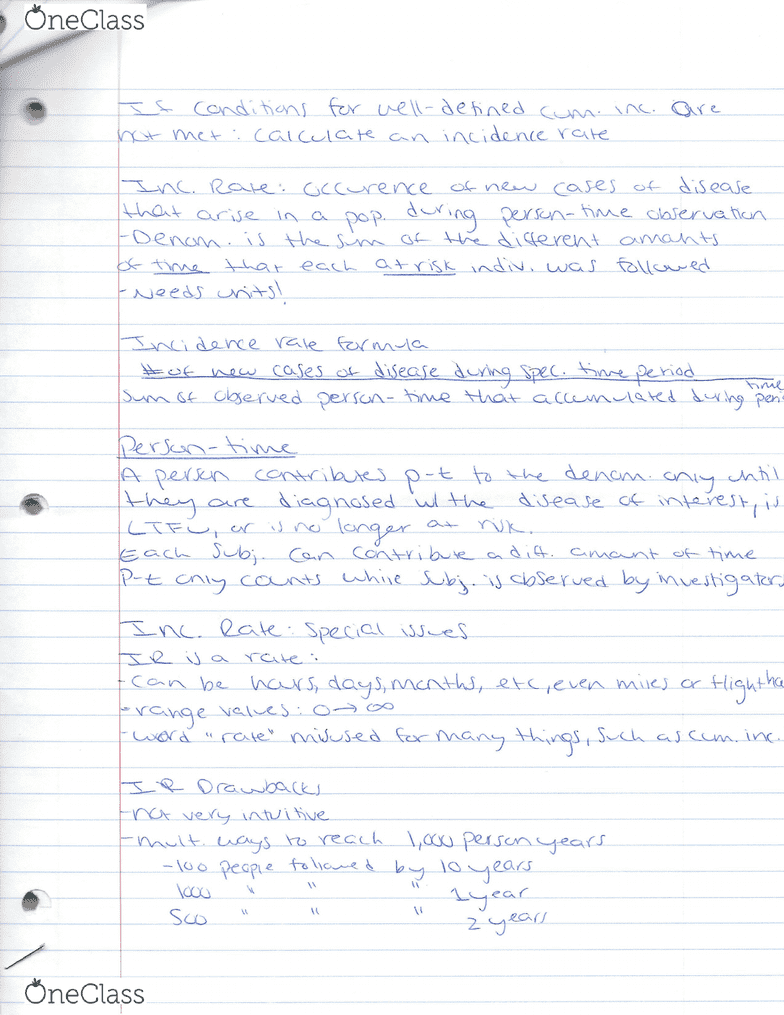 OneClass
If conditions for well-defined cum. inc. are
not met: calculate an incidence rate
Inc. Rate: occurence of new cases of disease
that arise in a pop. during person-time observation
-Denom. is the sum of the different amants
of time that each at risk indiv. was followed
-Needs units!
Incidence rate formula
# of new cases of disease during spec. time period
sum of observed person-time that accumulated during time
Person-time
A person contributes p-t to the denom. only until
they are diagnosed w/ the disease of interest, is
LTFU, or is no longer at risk.
Each subj. can contribute a diff. amount of time
P-t only counts while subj. is observed by investigators
Inc. Rate: Special issues
IR is a rate:
-can be hours, days, months, etc, even miles or flight
-range values: 0→∞
-word "rate" misused for many things, such as cum. inc.
IR Drawbacks
-not very intuitive
-mult. ways to reach 1,000 person years
-100 people followed by 10 years
1000 " " " 1 year
500 " " " 2 years
OneClass